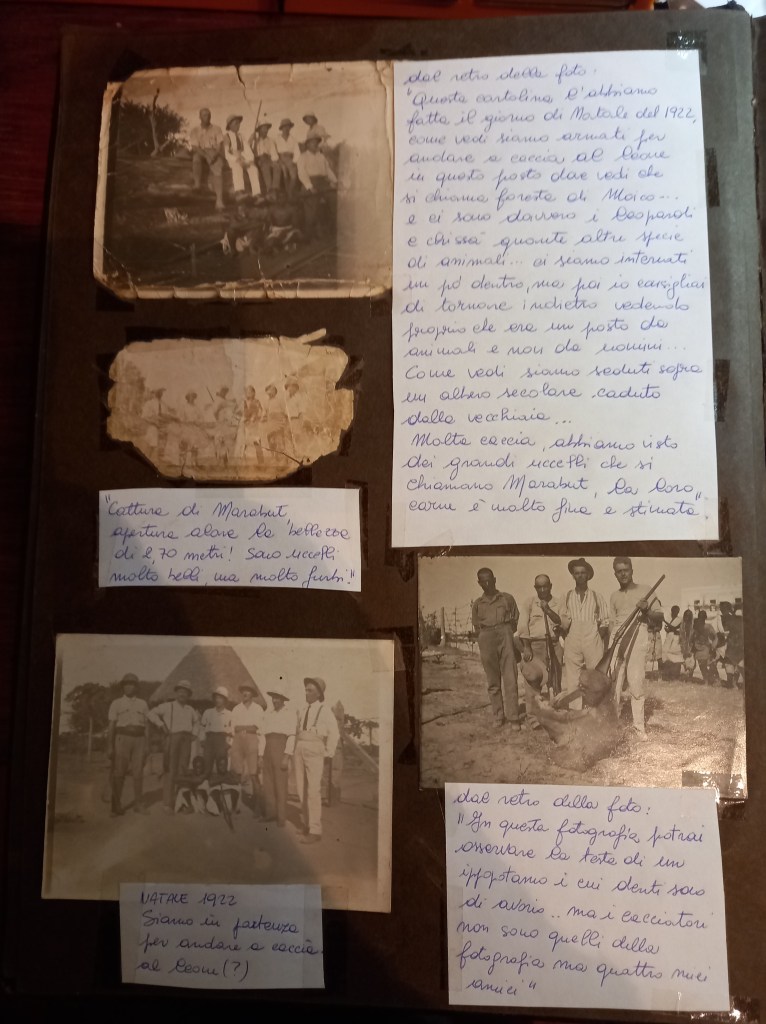 dal retro della foto:
"Questa cartolina l'abbiamo
fatta il giorno di Natale del 1922,
come vedi siamo armati per
andare a caccia al leone
in questo posto dove vedi che
si chiama foresta di Moico...
e ci sono davvero i leopardi
e chissà quante altre specie
di animali... ci siamo internati
un pò dentro, ma poi io consigliai
di tornare indietro vedendo
proprio che era un posto da
animali e non da uomini...
Come vedi siamo seduti sopra
un albero secolare caduto
dalla vecchiaia...
Molta caccia, abbiamo visto
dei grandi uccelli che si
chiamano Marabut, la loro
carne è molto fina e stimata."
"Cattura di Marabut
apertura alare la bellezza
di 2,70 metri! Sono uccelli
molto belli, ma molto furbi!"
NATALE 1922
Siamo in partenza
per andare a caccia
al leone (?)
dal retro della foto:
"In questa fotografia potrai
osservare la testa di un
ippopotamo i cui denti sono
di avorio.. ma i cacciatori
non sono quelli della
fotografia ma quattro miei
amici"